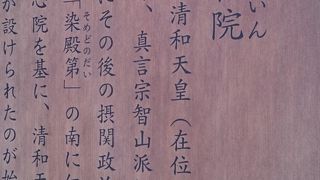 院
いん
清和天皇（在位
、真言宗智山派
にその後の摂関政治
「染殿第」の南に
そめどのだい
心院を基に、清和天
が設けられたのが始